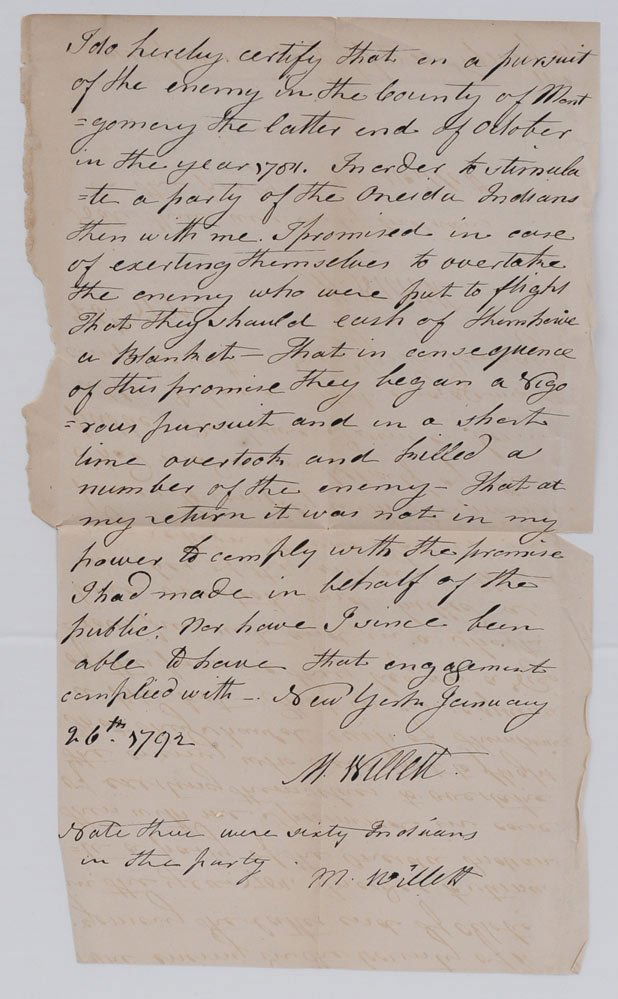 I do hereby certify that on a pursuit
of the enemy in the County of Mont
=gomery the latter end of October
in the year 1781. In order to stimula
=te a party of the Oneida Indians
then with me. I promised in case
of exerting themselves to overtake
the enemy who were put to flight
That they should each of them have
a Blanket — That in consequence
of this promise they began a vigo
=rous pursuit and in a short
time overtook and killed a
number of the enemy — That at
my return it was not in my
power to comply with the promise
I had made in behalf of the
public. Nor have I since been
able to have that engagement
complied with — New York January
26th. 1792
M. Willett.
Note there were sixty Indians
in the party.
M. Willett